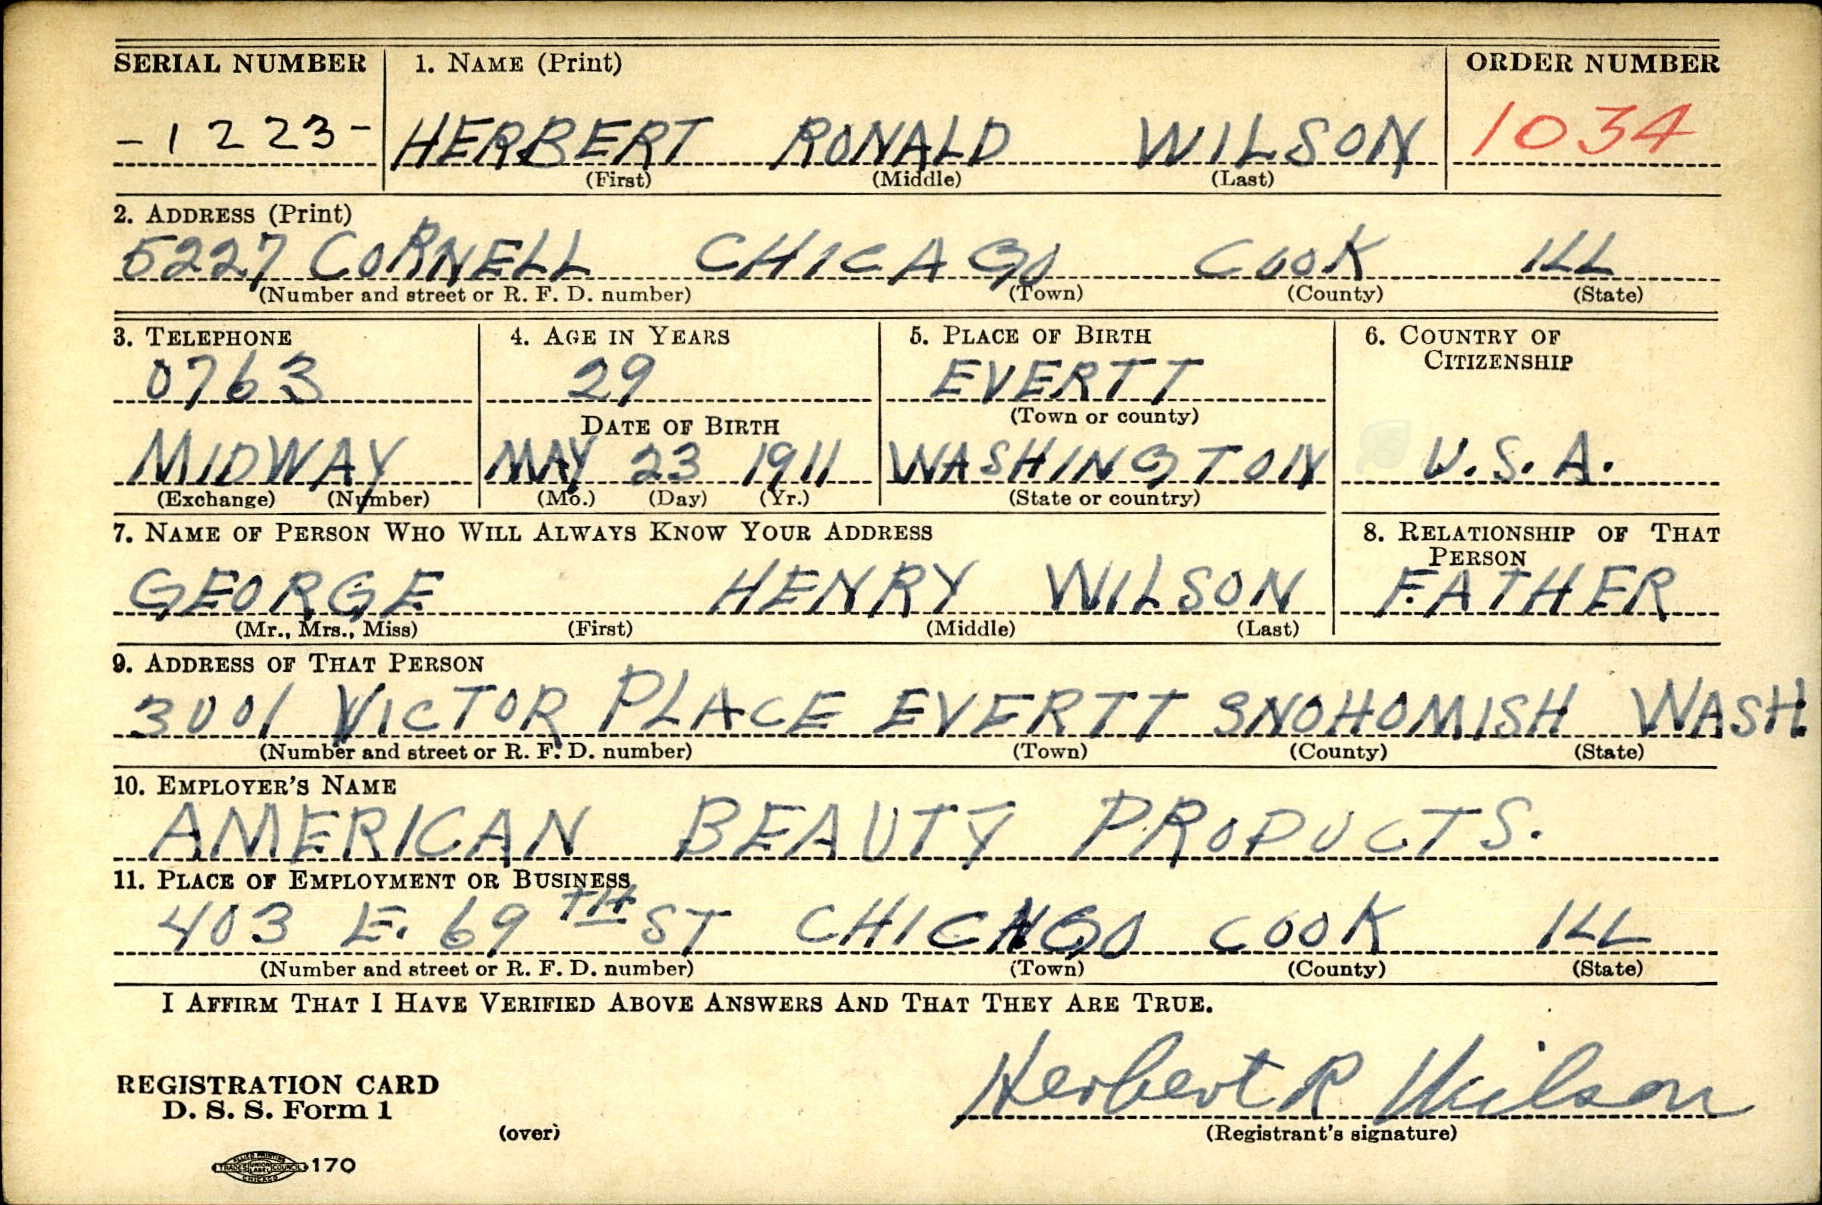 SERIAL NUMBER 1. NAME (Print) ORDER NUMBER
-1223- HERBERT RONALD WILSON 1034
(First) (Middle) (Last)
2. ADDRESS (Print)
5227 CORNELL CHICAGO COOK ILL
(Number and street or R. F. D. number) (Town) (County) (State)
3. TELEPHONE 4. AGE IN YEARS 5. PLACE OF BIRTH 6. COUNTRY OF
CITIZENSHIP
0763 29 EVERTT
(Town or county)
DATE OF BIRTH
MIDWAY MAY 23 1911 WASHINGTON U.S.A.
(Exchange) (Number) (Mo.) (Day) (Yr.) (State or country)
7. NAME OF PERSON WHO WILL ALWAYS KNOW YOUR ADDRESS 8. RELATIONSHIP OF THAT
PERSON
GEORGE HENRY WILSON FATHER
(Mr., Mrs., Miss) (First) (Middle) (Last)
9. ADDRESS OF THAT PERSON
3001 VICTOR PLACE EVERTT SNOHOMISH WASH.
(Number and street or R. F. D. number) (Town) (County) (State)
10. EMPLOYER'S NAME
AMERICAN BEAUTY PRODUCTS.
11. PLACE OF EMPLOYMENT OR BUSINESS
403 E. 69TH ST CHICAGO COOK ILL
(Number and street or R. F. D. number) (Town) (County) (State)
I AFFIRM THAT I HAVE VERIFIED ABOVE ANSWERS AND THAT THEY ARE TRUE.
Herbert R Wilson
REGISTRATION CARD
D. S. S. Form 1
(over) (Registrant's signature)
ALLIED PRINTING
TRADES UNION LABEL COUNCIL
CHICAGO
170